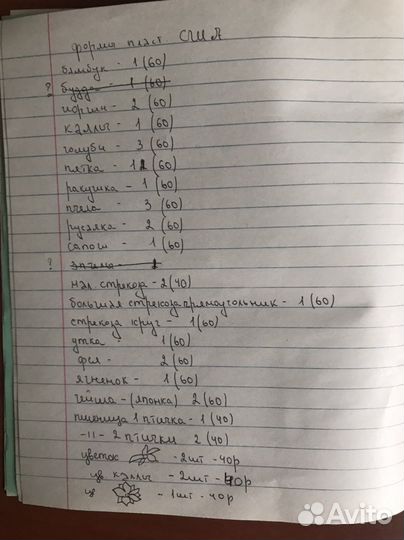 форма пласт США
бамбук - 1 (60)
? будда - 1 (60)
кэллиг - 1 (60)
голуби - 3 (60)
пятка - 1 (60)
ракушка - 1 (60)
пчела - 3 (60)
русалка - 2 (60)
сапог - 1 (60)
?
мал стрекоза - 2 (40)
большая стрекоза прямоугольник - 1 (60)
стрекоза круг - 1 (60)
утка - 1 (60)
фея - 2 (60)
ягненок - 1 (60)
гейша - (японка) 2 (60)
пшеница 1 птичка - 1 (40)
-11- 2 птички 2 (40)
цветок - 2шт - 40р
цв кэллиг - 2шт - 40р
цв - 1шт - 40р
Avito